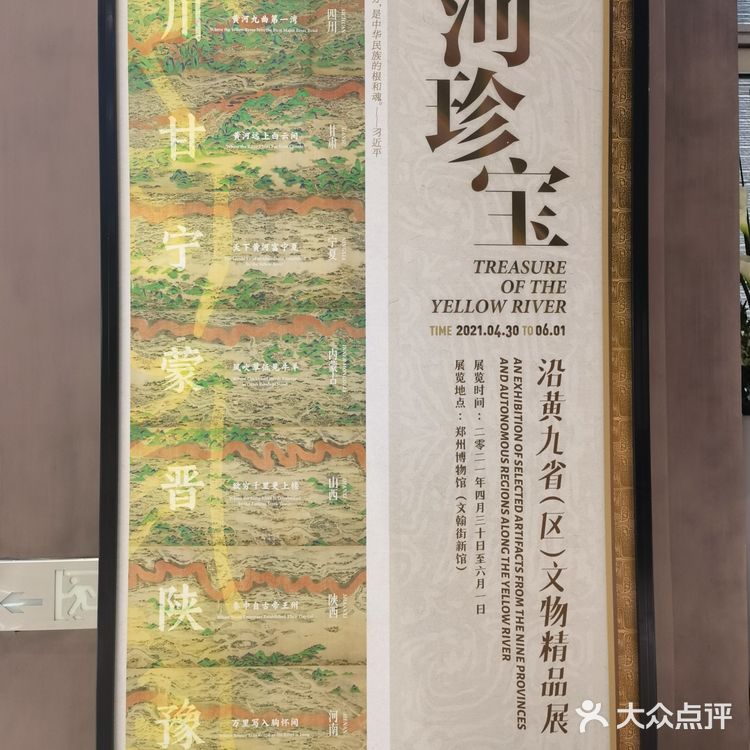 河
珍
宝
TREASURE
OF THE
YELLOW RIVER
TIME 2021.04.30 TO 06.01
沿黄九省(区)文物精品展
AN EXHIBITION OF SELECTED ARTIFACTS FROM THE NINE PROVINCES
AND AUTONOMOUS REGIONS ALONG THE YELLOW RIVER
展览时间:二零二一年四月三十日至六月一日
展览地点:郑州博物馆(文翰街新馆)
是中华民族的根和魂。——习近平
川
黄河九曲第一湾
四川
甘
黄河远上白云间
甘肃
宁
天下黄河富宁夏
宁夏
蒙
风吹草低见牛羊
内蒙古
晋
欲穷千里更上楼
山西
陕
秦中自古帝王州
陕西
豫
万里写入胸怀间
河南
大众点评